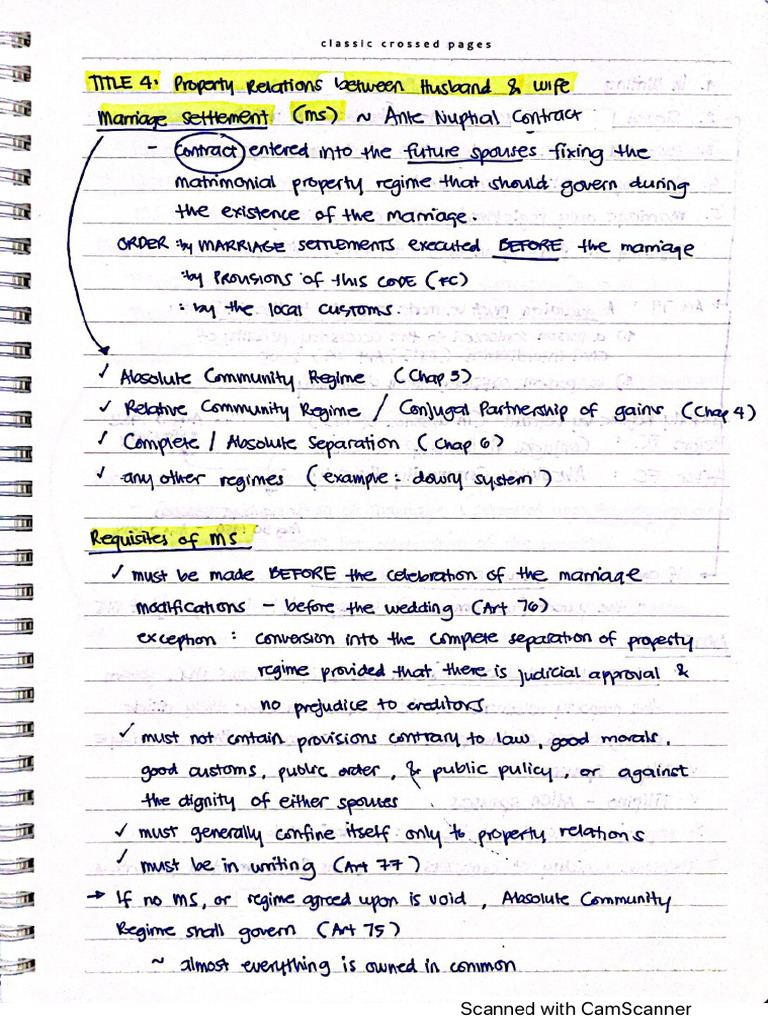 classic crossed pages
TITLE 4: Property Relations between Husband & Wife
Marriage Settlement (MS) ~ Ante Nuptial Contract
- Contract entered into the future spouses fixing the
matrimonial property regime that should govern during
the existence of the marriage.
ORDER : by MARRIAGE SETTLEMENTS executed BEFORE the marriage
: by PROVISIONS OF THIS CODE (FC)
: by the local customs.
✓ Absolute Community Regime (Chap 3)
✓ Relative Community Regime / Conjugal Partnership of gains (Chap 4)
✓ Complete / Absolute Separation (Chap 6)
✓ any other regimes (example: dowry system)
Requisites of MS
✓ must be made BEFORE the celebration of the marriage
modifications - before the wedding (Art 76)
exception : conversion into the complete separation of property
regime provided that there is judicial approval &
no prejudice to creditors.
✓ must not contain provisions contrary to law, good morals,
good customs, public order, & public policy, or against
the dignity of either spouses
✓ must generally confine itself only to property relations
✓ must be in writing (Art 77)
→ If no MS, or regime agreed upon is void, Absolute Community
Regime shall govern (Art 75)
~ almost everything is owned in common
Scanned with CamScanner